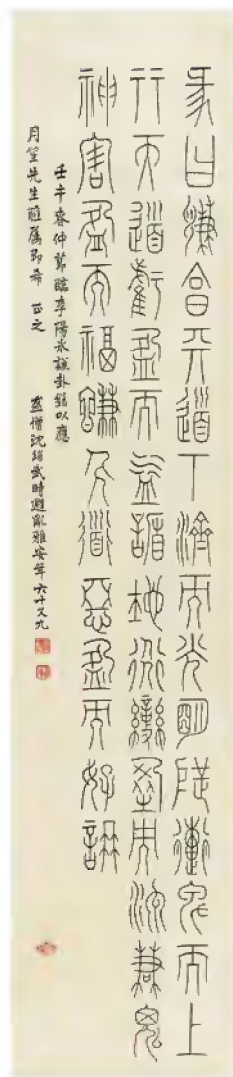 彖曰謙亨天道下濟而光明地道卑而上
行天道虧盈而益謙地道變盈而流謙鬼
神害盈而福謙人道惡盈而好謙
壬午春仲節臨李陽冰謙卦銘以應
月笙先生雅屬即希 正之 僧沈武時避亂雅安年六十又九